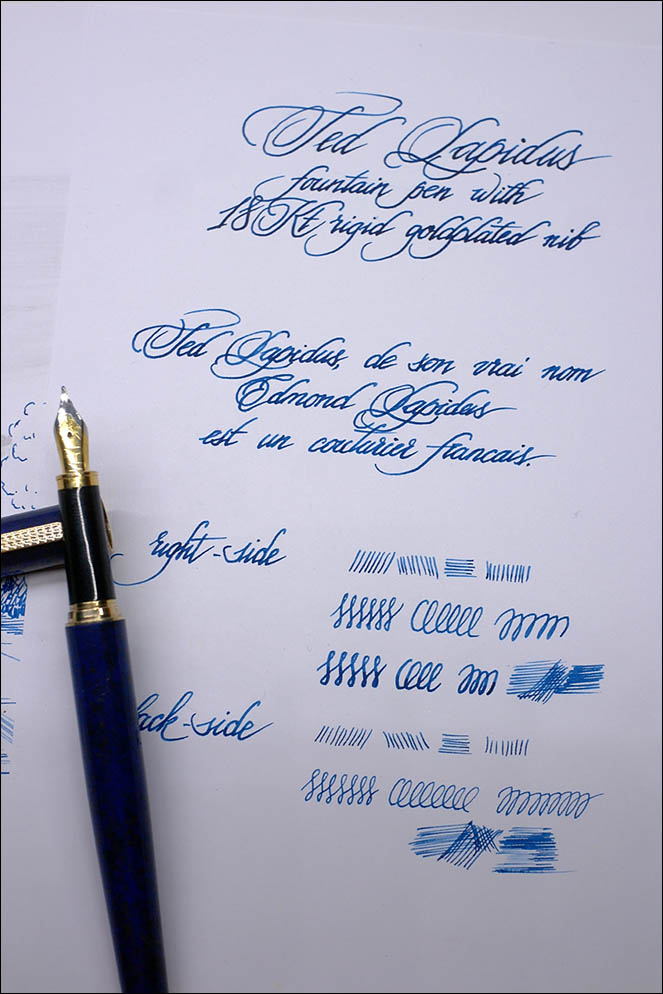 Ted Lapidus
fountain pen with
18Kt rigid goldplated nib
Ted Lapidus, de son vrai nom
Edmond Lapidus
est un couturier francais.
right-side
back-side